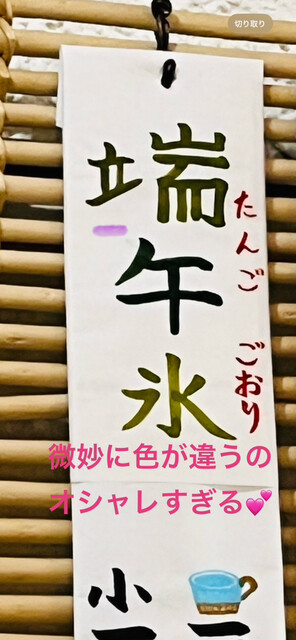 切り取り
端午氷
たんご ごおり
微妙に色が違うの
オシャレすぎる💕
小